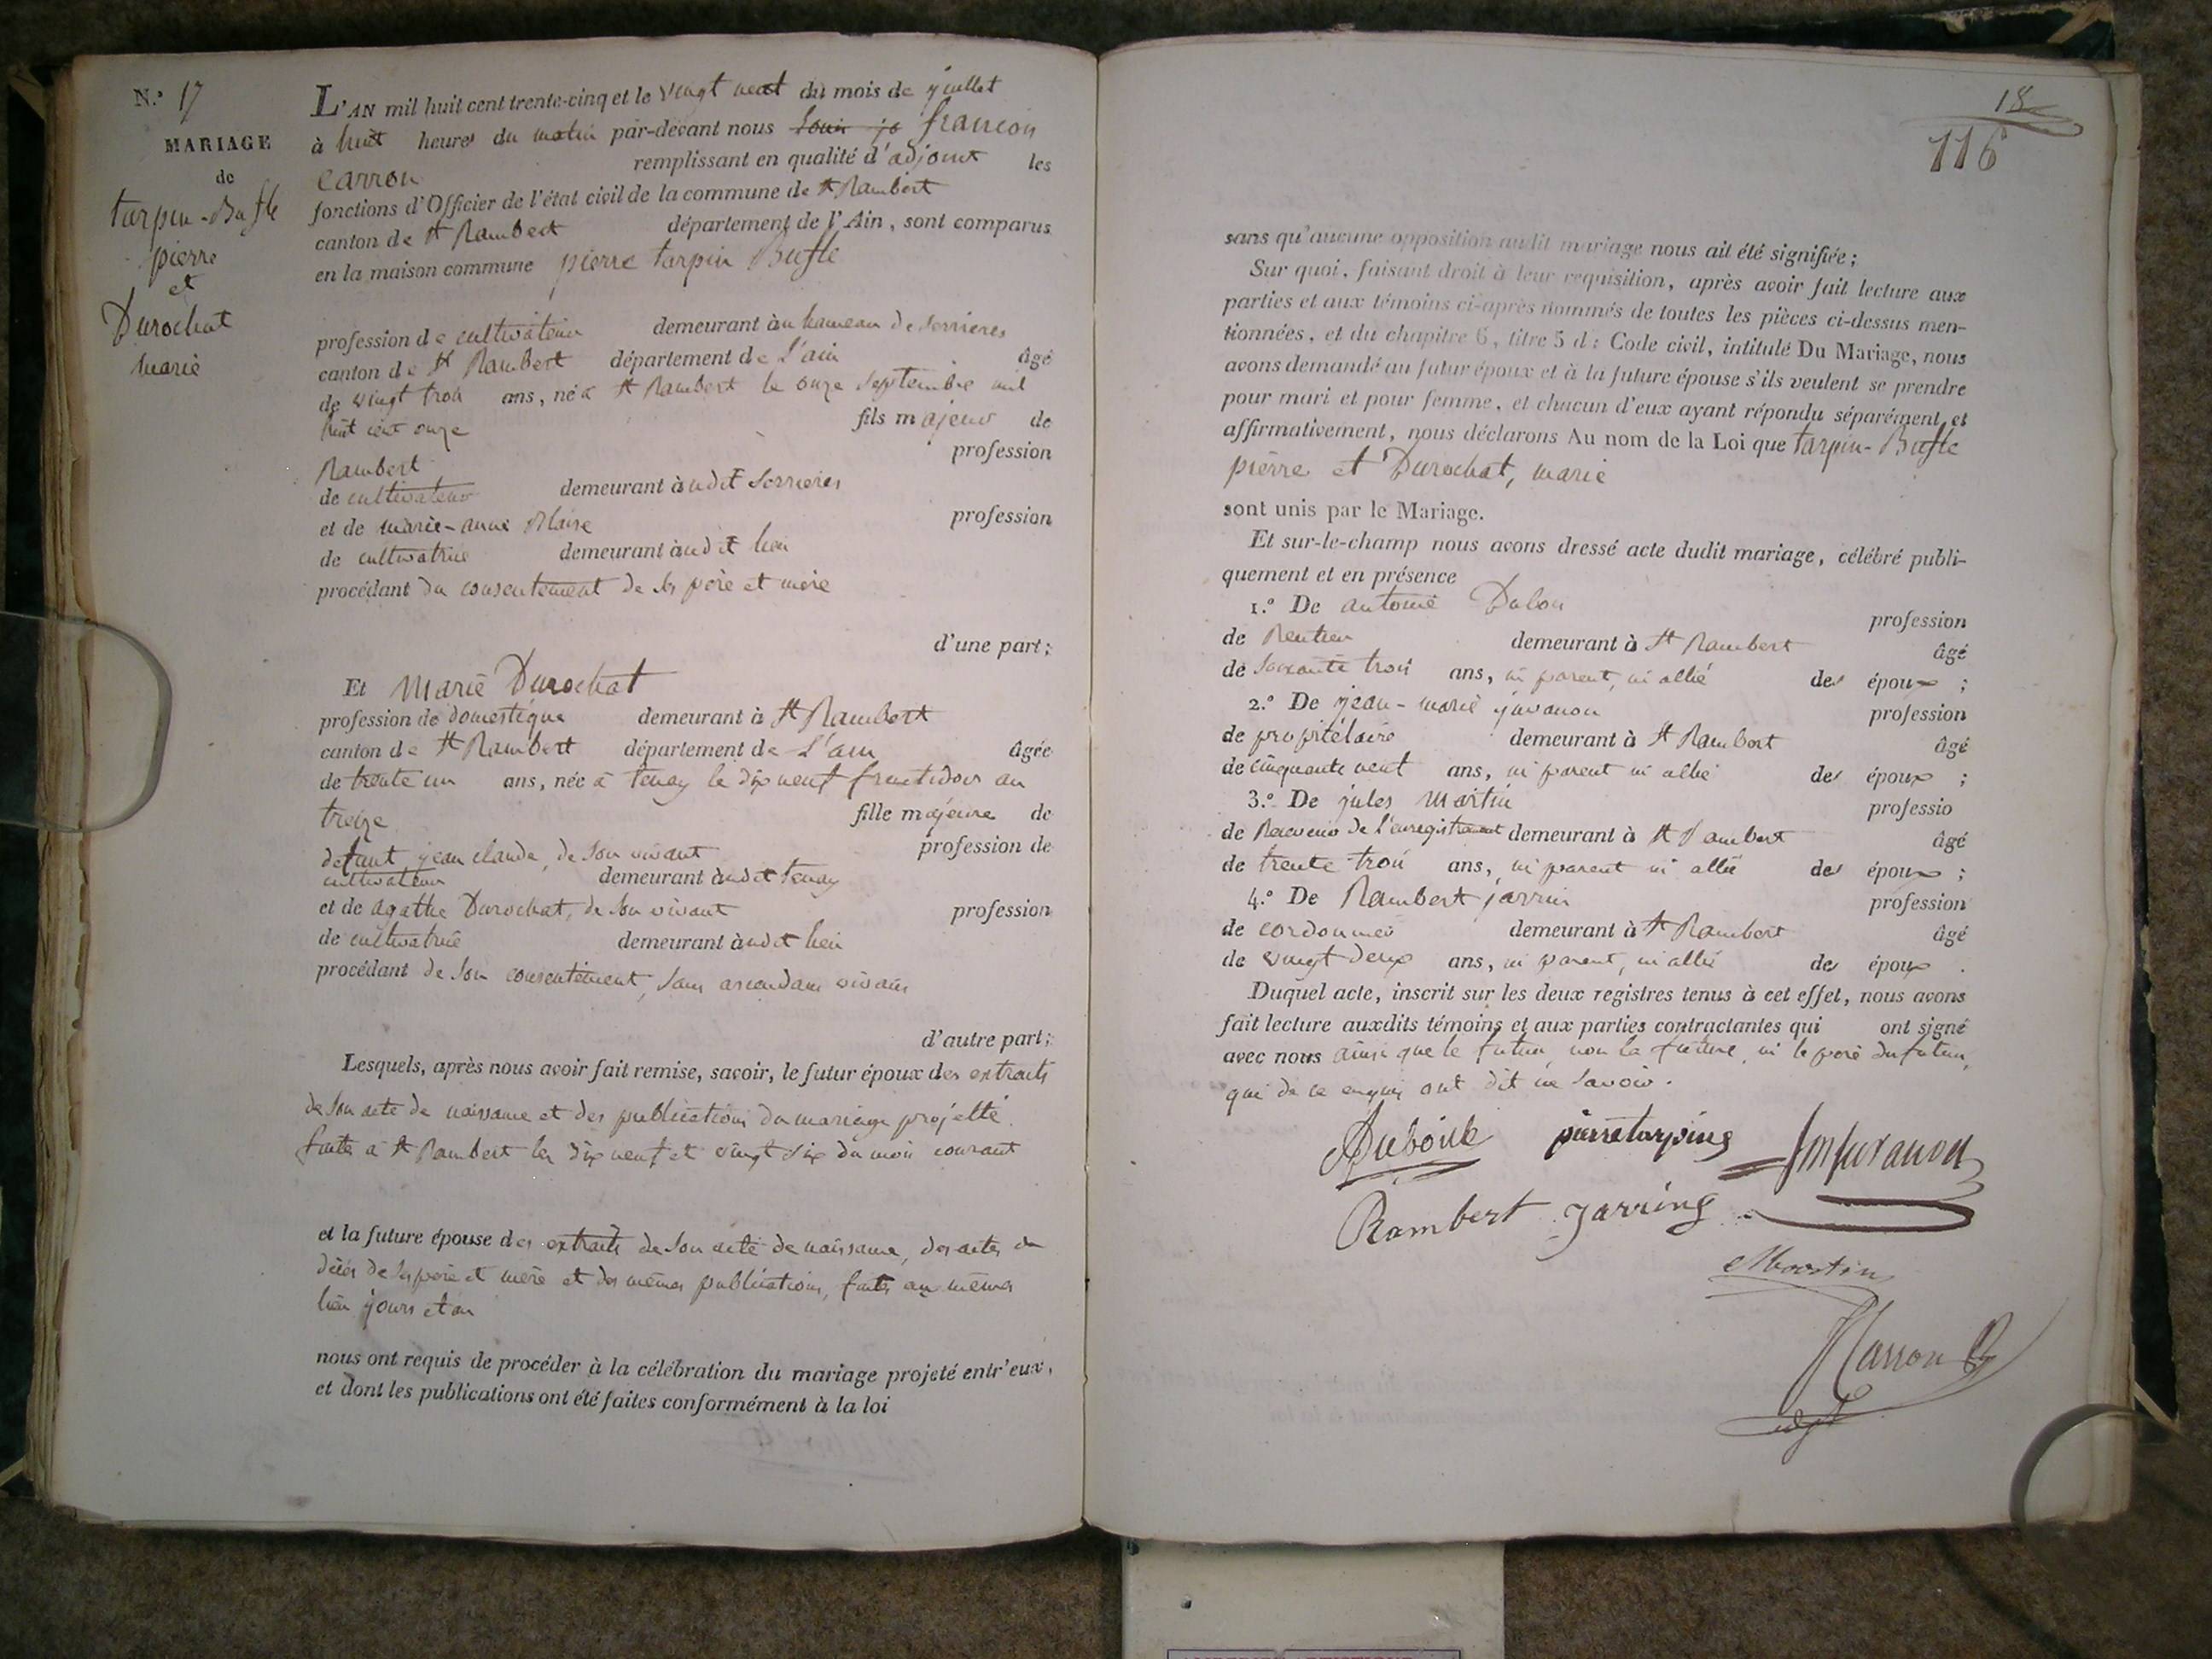 N.º 17
MARIAGE
de
tarpin-Bufle
pierre
et
Durochat
marie
L'AN mil huit cent trente-cinq et le vingt neuf du mois de juillet
à huit heures du matin par-devant nous françois
Carron remplissant en qualité d'adjoint les
fonctions d'Officier de l'état civil de la commune de St Rambert
canton de St Rambert département de l'Ain, sont comparus
en la maison commune pierre tarpin Bufle
profession de cultivateur demeurant au hameau de Serrieres
canton de St Rambert département de L'ain âgé
de vingt trois ans, né à St Rambert le onze Septembre mil
huit cent onze fils majeur de
Rambert profession
de cultivateur demeurant àudit Serrieres
et de marie-anne Blaise profession
de cultivatrice demeurant àudit lieu
procédant du consentement de ses père et mère
d'une part;
Et Marie Durochat
profession de domestique demeurant à St Rambert
canton de St Rambert département de L'ain âgée
de trente un ans, née à tenay le dix neuf fructidor an
treize fille majeure de
defunt jean claude, de son vivant profession de
cultivateur demeurant àudit tenay
et de agathe Durochat, de son vivant profession
de cultivatrice demeurant àudit lieu
procédant de son consentement, sans ascendans vivans
d'autre part;
Lesquels, après nous avoir fait remise, savoir, le futur époux des extraits
de son acte de naissance et des publications du mariage projetté
faites à St Rambert les dix neuf et vingt six du mois courant
et la future épouse des extraits de son acte de naissance, des actes de
décès de ses père et mère et des mêmes publications, faites aux mêmes
lieu jours et an
nous ont requis de procéder à la célébration du mariage projeté entr'eux,
et dont les publications ont été faites conformément à la loi
18
116
sans qu'aucune opposition audit mariage nous ait été signifiée;
Sur quoi, faisant droit à leur requisition, après avoir fait lecture aux
parties et aux témoins ci-après nommés de toutes les pièces ci-dessus men-
tionnées, et du chapitre 6, titre 5 du Code civil, intitulé Du Mariage, nous
avons demandé au futur époux et à la future épouse s'ils veulent se prendre
pour mari et pour femme, et chacun d'eux ayant répondu séparément et
affirmativement, nous déclarons Au nom de la Loi que tarpin-Bufle
pierre et Durochat, marie
sont unis par le Mariage.
Et sur-le-champ nous avons dressé acte dudit mariage, célébré publi-
quement et en présence
1.º De antoine profession
de Rentier demeurant à St Rambert âgé
de soixante trois ans, ni parent, ni allié des époux ;
2.º De jean-marie juvanon profession
de propriétaire demeurant à St Rambert âgé
de cinquante neuf ans, ni parent ni allié des époux ;
3.º De jules Martin professio
de Receveur de l'enregistrement demeurant à St Rambert âgé
de trente trois ans, ni parent ni allié des époux ;
4.º De Rambert jarrin profession
de cordonnier demeurant à St Rambert âgé
de vingt deux ans, ni parent, ni allié des époux .
Duquel acte, inscrit sur les deux registres tenus à cet effet, nous avons
fait lecture auxdits témoins et aux parties contractantes qui ont signé
avec nous ainsi que le futur, non la future, ni le père du futur,
qui de ce enquis ont dit ne savoir.
pierre tarping jm juvanon
Rambert Jarring
Martin
Carron
adjt